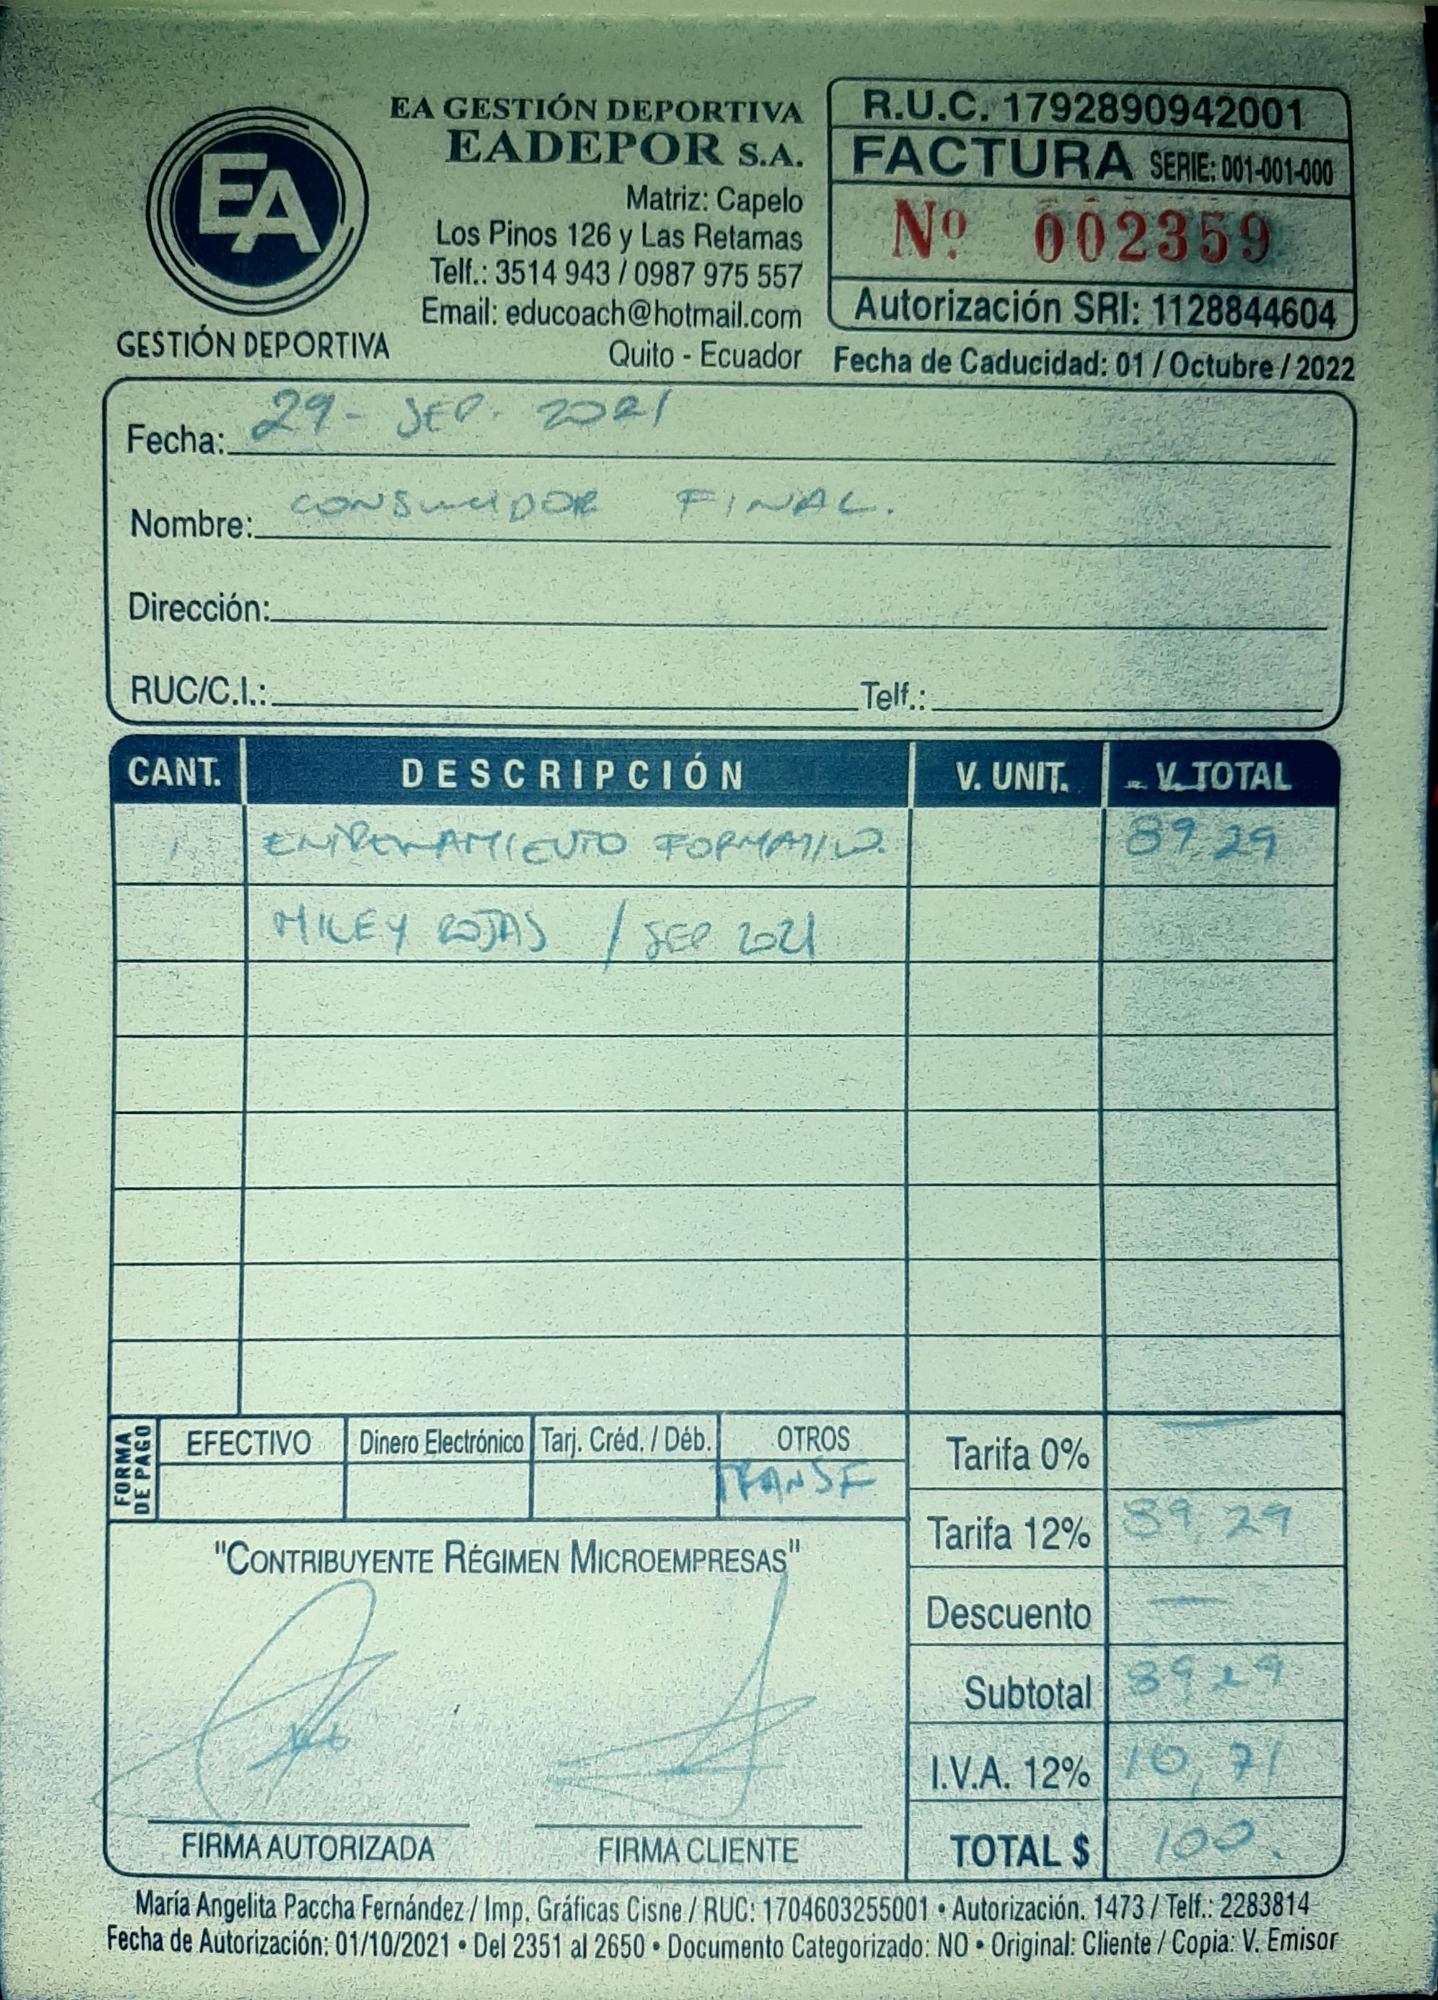 EA
GESTIÓN DEPORTIVA
EA GESTIÓN DEPORTIVA
EADEPOR S.A.
Matriz: Capelo
Los Pinos 126 y Las Retamas
Telf.: 3514 943 / 0987 975 557
Email: educoach@hotmail.com
Quito - Ecuador
R.U.C. 1792890942001
FACTURA SERIE: 001-001-000
Nº 002359
Autorización SRI: 1128844604
Fecha de Caducidad: 01 / Octubre / 2022
Fecha: 29- SEP. 2021
Nombre: CONSUMIDOR FINAL.
Dirección:
RUC/C.I.: Telf.:
CANT. DESCRIPCIÓN V. UNIT. V. TOTAL
1 ENTRENAMIENTO FORMATIVO. 89.29
MILEY ROJAS / SEP 2021
FORMA DE PAGO
EFECTIVO Dinero Electrónico Tarj. Créd. / Déb. OTROS
TRANSF
Tarifa 0% —
Tarifa 12% 89,29
Descuento —
Subtotal 89.29
I.V.A. 12% 10,71
TOTAL $ 100.
"CONTRIBUYENTE RÉGIMEN MICROEMPRESAS"
FIRMA AUTORIZADA FIRMA CLIENTE
María Angelita Paccha Fernández / Imp. Gráficas Cisne / RUC: 1704603255001 • Autorización. 1473 / Telf.: 2283814
Fecha de Autorización: 01/10/2021 • Del 2351 al 2650 • Documento Categorizado: NO • Original: Cliente / Copia: V. Emisor